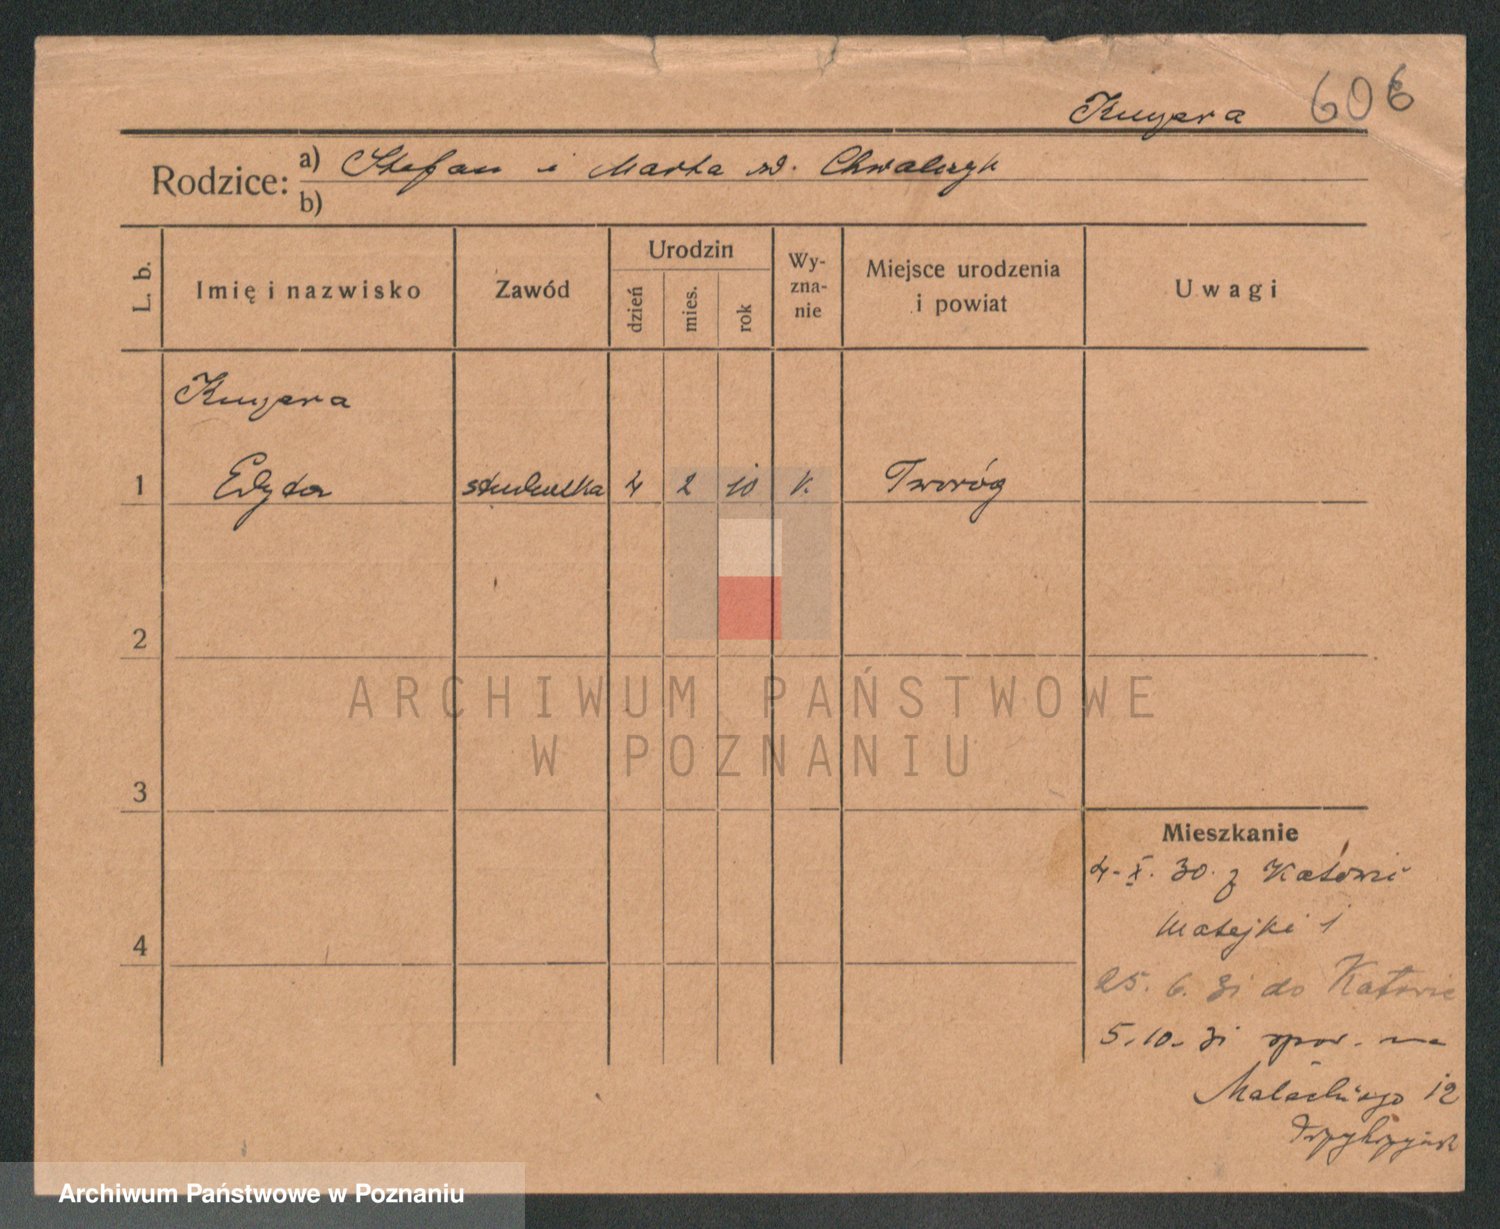 Kuczera 606
Rodzice: a) Stefan i Marta zd. Chwalczyk
b)
L. b.
Imię i nazwisko
Zawód
Urodzin
dzień
mies.
rok
Wy-
zna-
nie
Miejsce urodzenia
i powiat
Uwagi
1 Edyta studentka 4 2 10 k. Tworóg
2
3
4
Mieszkanie
4. X. 30. z Katowic
Matejki 1
25. 6. 31 do Katowic
5. 10. 31 spow. na
12
ARCHIWUM PAŃSTWOWE
W POZNANIU
Archiwum Państwowe w Poznaniu